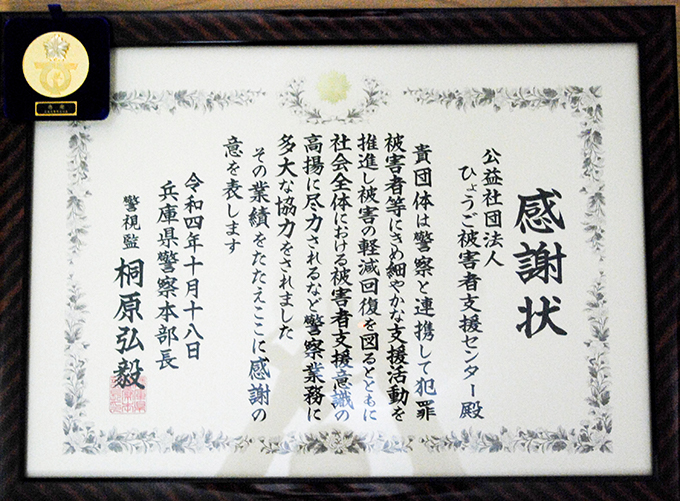 感謝状
公益社団法人
ひょうご被害者支援センター殿
貴団体は警察と連携して犯罪
被害者等にきめ細やかな支援活動を
推進し被害の軽減回復を図るとともに
社会全体における被害者支援意識の
高揚に尽力されるなど警察業務に
多大な協力をされました
その業績をたたえここに感謝の
意を表します
令和四年十月十八日
兵庫県警察本部長
警視監 桐原弘毅